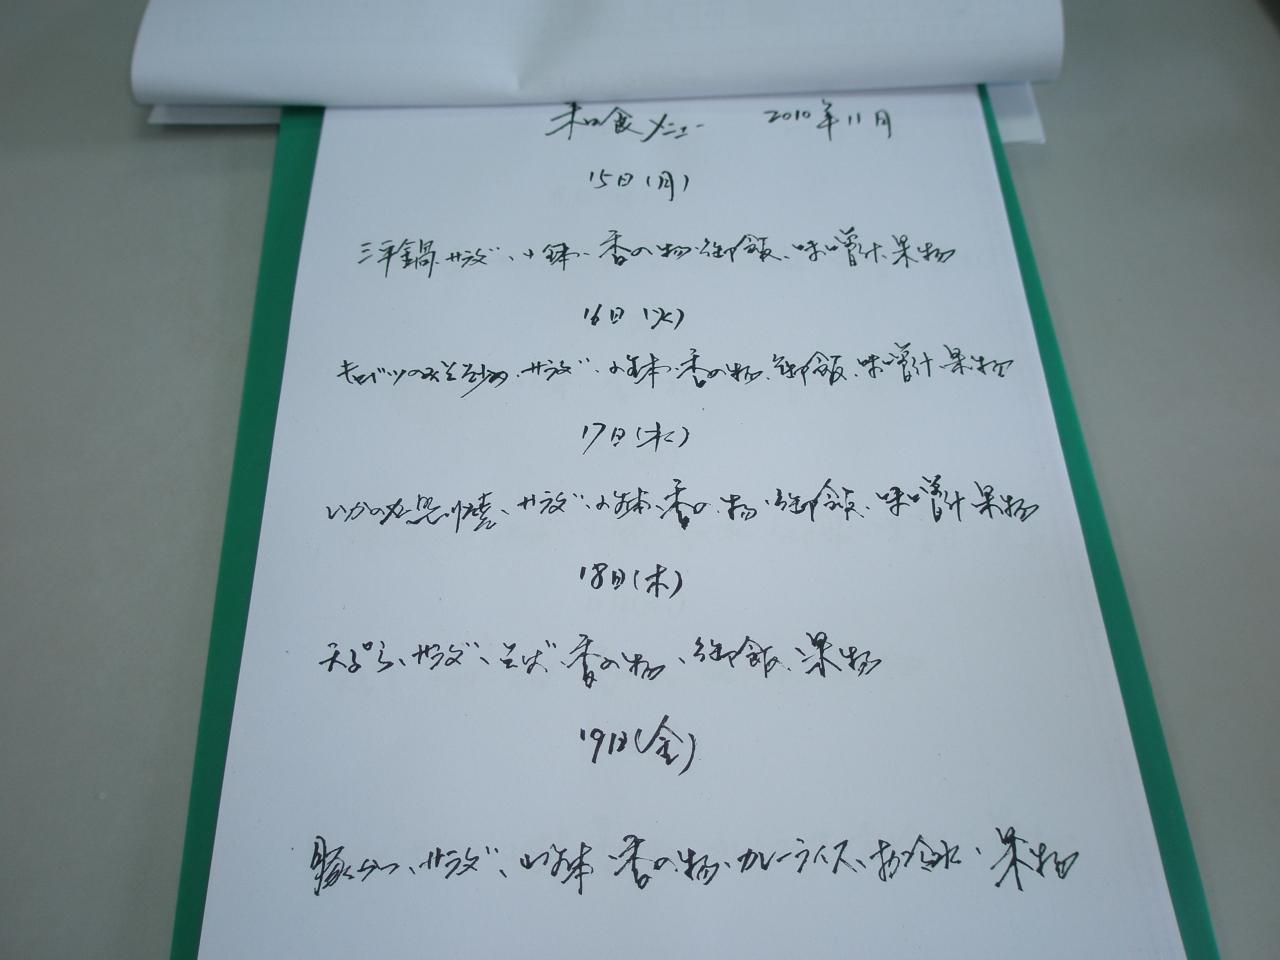 和食メニュー 2010年11月
15日(月)
三平鍋、サラダ、小鉢、香の物、御飯、味噌汁、果物
16日(火)
キャベツの味噌炒め、サラダ、小鉢、香の物、御飯、味噌汁、果物
17日(水)
いかの丸煮風、サラダ、小鉢、香の物、御飯、味噌汁、果物
18日(木)
天ぷら、サラダ、そば、香の物、御飯、果物
19日(金)
豚かつ、サラダ、小鉢、香の物、カレーライス、お冷水、果物